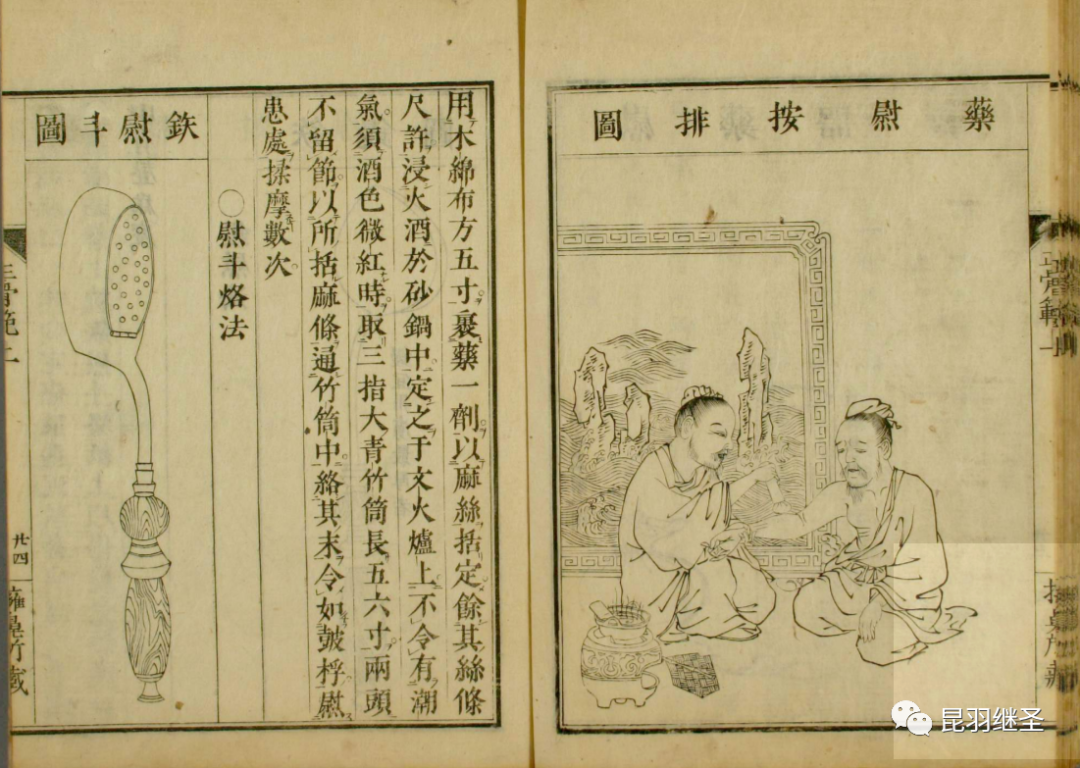 藥慰按排圖
用木綿布方五寸。裹藥一劑。以麻絲括定餘其絲條
尺許浸火酒於砂鍋中定之于文火爐上不令有潮
氣。須酒色微紅時。取三指大青竹筒長五六寸。兩頭
不留節。以所括麻條通竹筒中。絡其末令如皷桴慰
患處揉摩數次。
○慰斗烙法
鉄慰斗圖
廿四
昆羽继圣